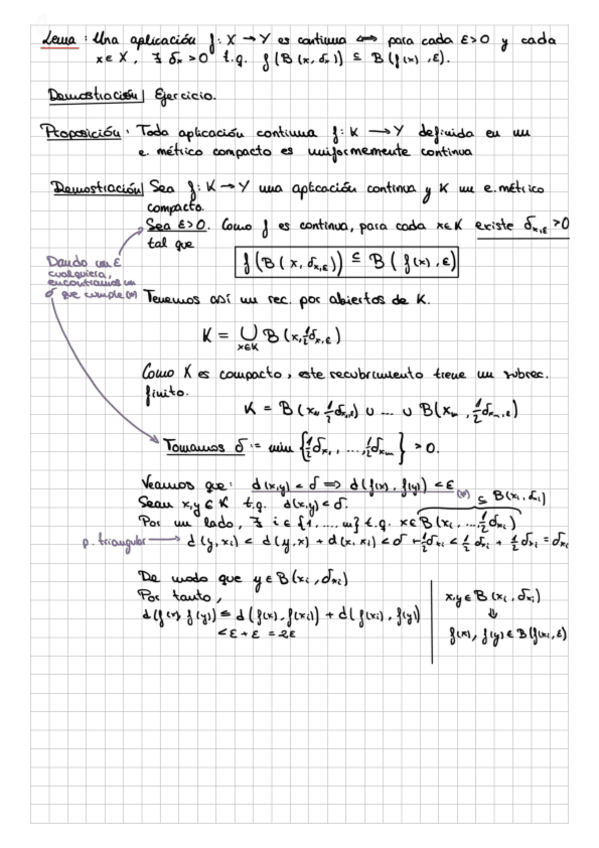 Lema: Una aplicación f: X → Y es continua ⟺ para cada ε>0 y cada
x∈X, ∃ δₓ>0 t.q. f(B(x, δₓ)) ⊆ B(f(x), ε).
Demostración| Ejercicio.
Proposición: Toda aplicación continua f: K → Y definida en un
e. métrico compacto es uniformemente continua
Demostración| Sea f: K → Y una aplicación continua y K un e. métrico
compacto.
Sea ε>0. Como f es continua, para cada x∈K existe δ_{x,ε} >0
tal que
f(B(x, δ_{x,ε})) ⊆ B(f(x), ε)
Dando un ε
cualquiera,
encontramos un
δ que cumple (*)
Tenemos así un rec. por abiertos de K.
K = ⋃_{x∈K} B(x, ½δ_{x,ε})
Como K es compacto, este recubrimiento tiene un subrec.
finito.
K = B(x₁, ½δ_{x₁,ε}) ∪ ... ∪ B(xₘ, ½δ_{xₘ,ε})
Tomamos δ := min {½δ_{x₁}, ..., ½δ_{xₘ}} > 0.
Veamos que: d(x,y) < δ ⟹ d(f(x), f(y)) < ε (*)
Sean x,y ∈ K t.q. d(x,y) < δ. ⊆ B(xᵢ, δᵢ)
Por un lado, ∃ i ∈ {1, ..., m} t.q. x∈B(xᵢ, ... ½δ_{xᵢ})
p. triangular → d(y, xᵢ) < d(y,x) + d(x, xᵢ) < δ + ½δ_{xᵢ} < ½δ_{xᵢ} + ½δ_{xᵢ} = δ_{xᵢ}
De modo que y∈B(xᵢ, δ_{xᵢ})
Por tanto,
d(f(x), f(y)) ≤ d(f(x), f(xᵢ)) + d(f(xᵢ), f(y))
< ε + ε = 2ε
x,y ∈ B(xᵢ, δ_{xᵢ})
⇓
f(x), f(y) ∈ B(f(xᵢ, ε)